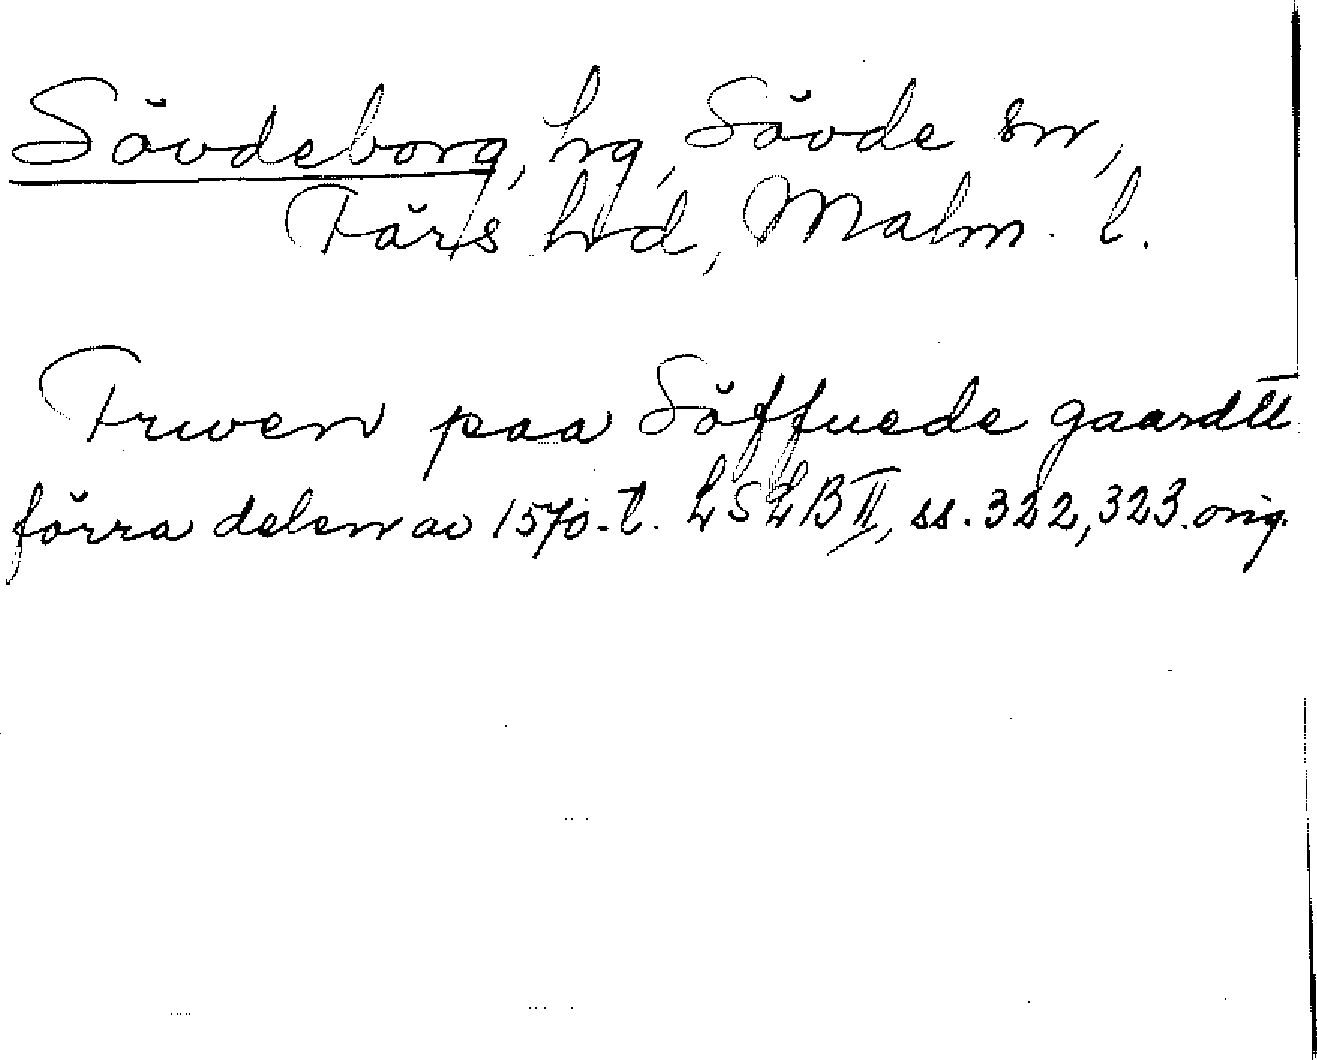 Sövdeborg, hg, Sövde sn,
Färs hd, Malm. l.
Fruen paa Söffuede gaardtt
förra delen av 1570-t. LSLB II, ss. 322, 323. orig.